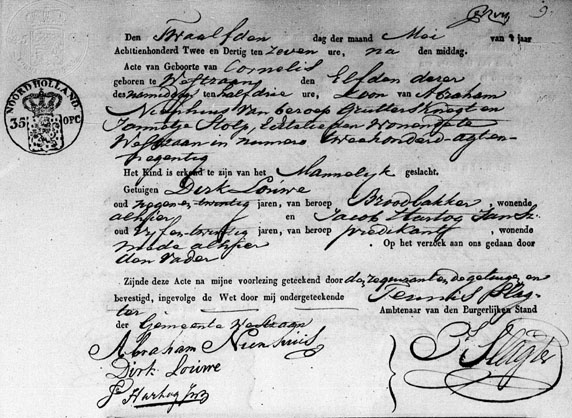 9.
NOORD HOLLAND.
35 OPC
Den Twaalfden dag der maand Mei van 't jaar
Achttienhonderd Twee en Dertig ten zeven ure, na den middag.
Acte van Geboorte van Cornelis
geboren te Westzaan den Elfden dezer
des namiddags ten half drie ure, Zoon van Abraham
Nienhuis van beroep Grutters Knegt en
Jannetje Stolp, Echtelieden Wonende te
Westzaan in numero tweehonderd agt en
negentig
Het Kind is erkend te zijn van het Mannelyk geslacht.
Getuigen Dirk Louwe
oud negen en twintig jaren, van beroep Broodbakker, wonende
alhier en Jacob Hartog Jansz.
oud vyf en twintig jaren, van beroep predikant, wonende
mede alhier Op het verzoek aan ons gedaan door
den Vader
Zijnde deze Acte na mijne voorlezing geteekend door de getuigen en
bevestigd, ingevolge de Wet door mij ondergeteekende Teunis Slag-
ter Ambtenaar van den Burgerlijken Stand
der Gemeente Westzaan
Abraham Nienhuis
Dirk Louwe
Js Hartog Jnsz
T. Slagter